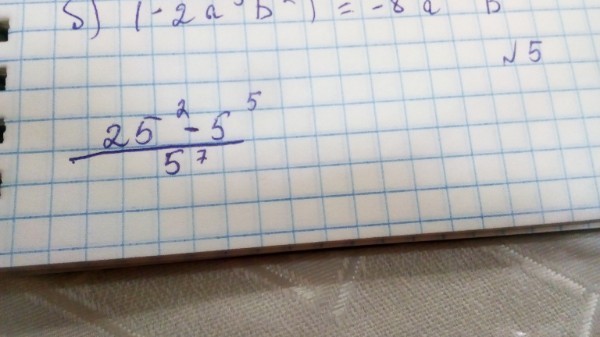 б) (-2a b ) = -8a b
№5
25² - 5⁵
5⁷